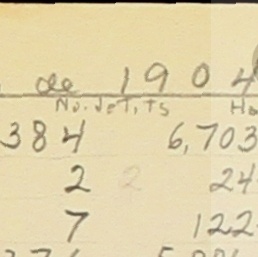 de 1904
No. de T,ts Ha
384 6,703
2 2 24
7 122